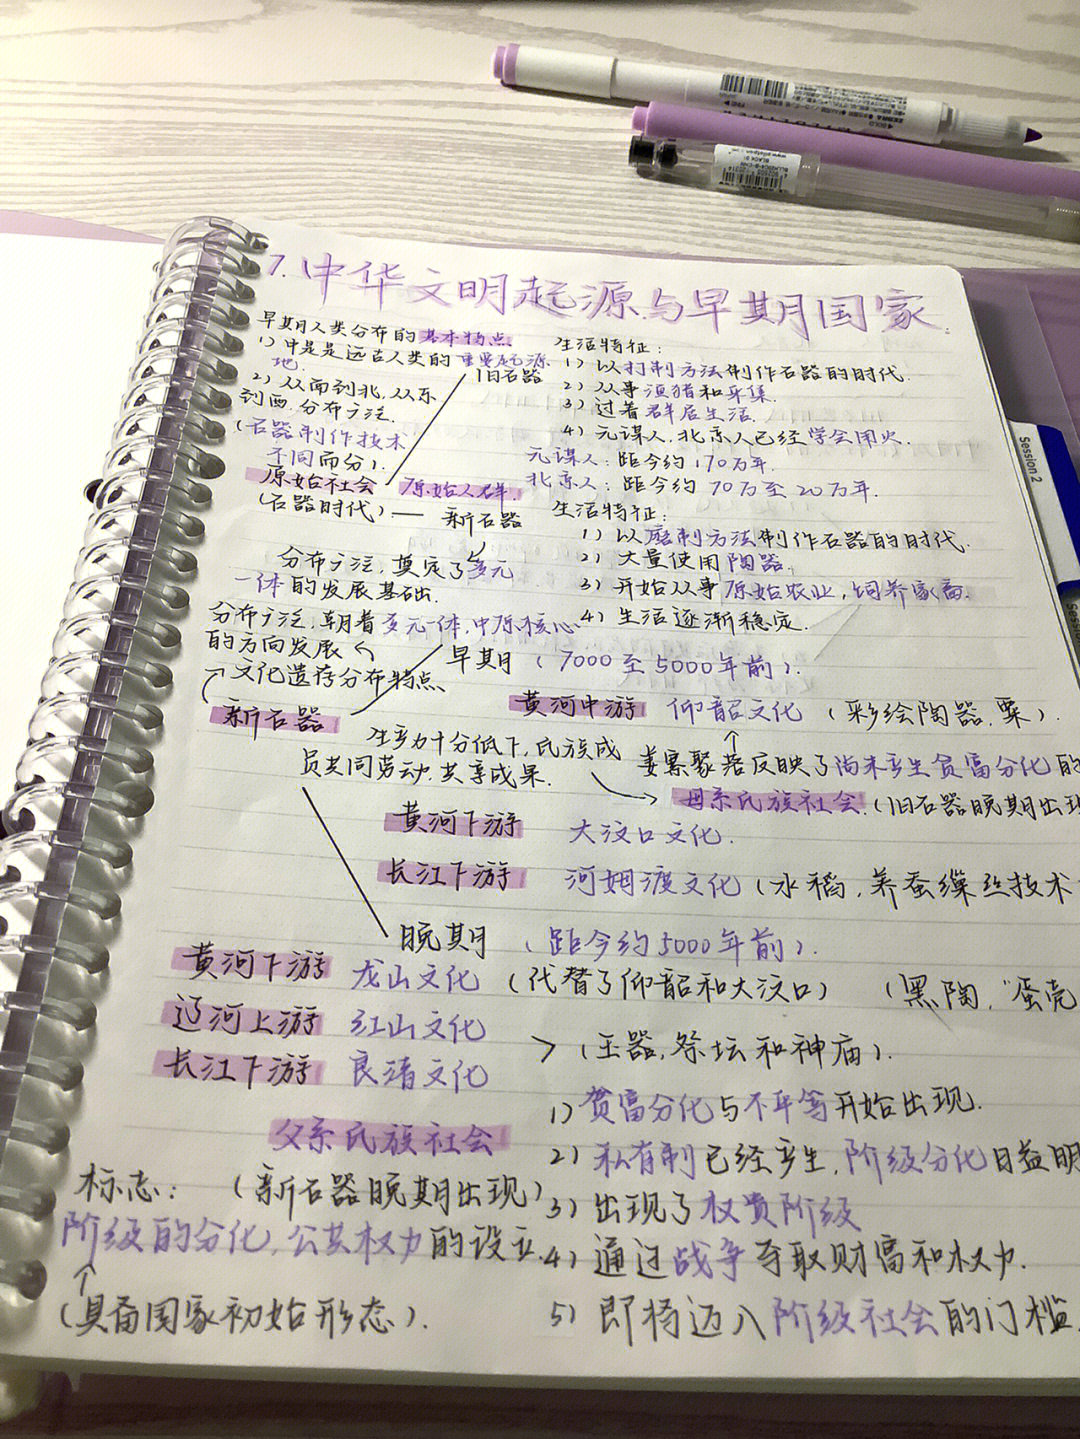 1.中华文明起源与早期国家.
早期人类分布的基本特点
1) 中是是远古人类的重要起源
地.
2) 从南到北,从东
到西,分布广泛.
(石器制作技术
不同而分).
旧石器
生活特征:
1) 以打制方法制作石器的时代.
2) 从事渔猎和采集.
3) 过着群居生活.
4) 元谋人,北京人已经学会用火.
元谋人: 距今约170万年.
北京人: 距今约 70万至20万年.
原始社会 原始人群.
(石器时代).— 新石器
生活特征:
1) 以磨制方法制作石器的时代.
2) 大量使用陶器.
3) 开始从事原始农业,饲养家畜.
4) 生活逐渐稳定.
分布广泛,奠定了多元
一体的发展基础.
分布广泛,朝着多元一体,中原核心
的方向发展
文化遗存分布特点
早期 (7000至5000年前).
新石器
黄河中游 仰韶文化 (彩绘陶器,粟).
生产力十分低下,民族成
员共同劳动,共享成果.
姜寨聚落反映了尚未产生贫富分化的
母系氏族社会.(旧石器晚期出现
黄河下游 大汶口文化.
长江下游 河姆渡文化 (水稻,养蚕缫丝技术
晚期 (距今约5000年前).
黄河下游 龙山文化 (代替了仰韶和大汶口) (黑陶,"蛋壳
辽河上游 红山文化
> (玉器,祭坛和神庙).
长江下游 良渚文化
父系氏族社会
1) 贫富分化与不平等开始出现.
2) 私有制已经产生,阶级分化日益明
3) 出现了权贵阶级
4) 通过战争夺取财富和权力.
5) 即将迈入阶级社会的门槛.
标志: (新石器晚期出现)
阶级的分化,公共权力的设立.
(具备国家初始形态).
Session 2